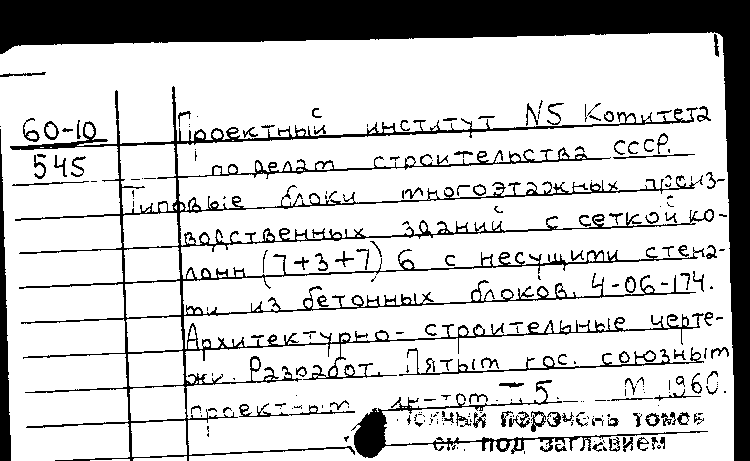 60-10
545
Проектный институт N5 Комитета
по делам строительства СССР.
Типовые блоки многоэтажных произ-
водственных зданий с сеткой ко-
лонн (7+3+7) 6 с несущими стена-
ми из бетонных блоков. 4-06-174.
Архитектурно-строительные черте-
жи. Разработ. Пятым гос. союзным
проектным ин-том. Т. 5. М., 1960.
Полный перечень томов
см. под заглавием